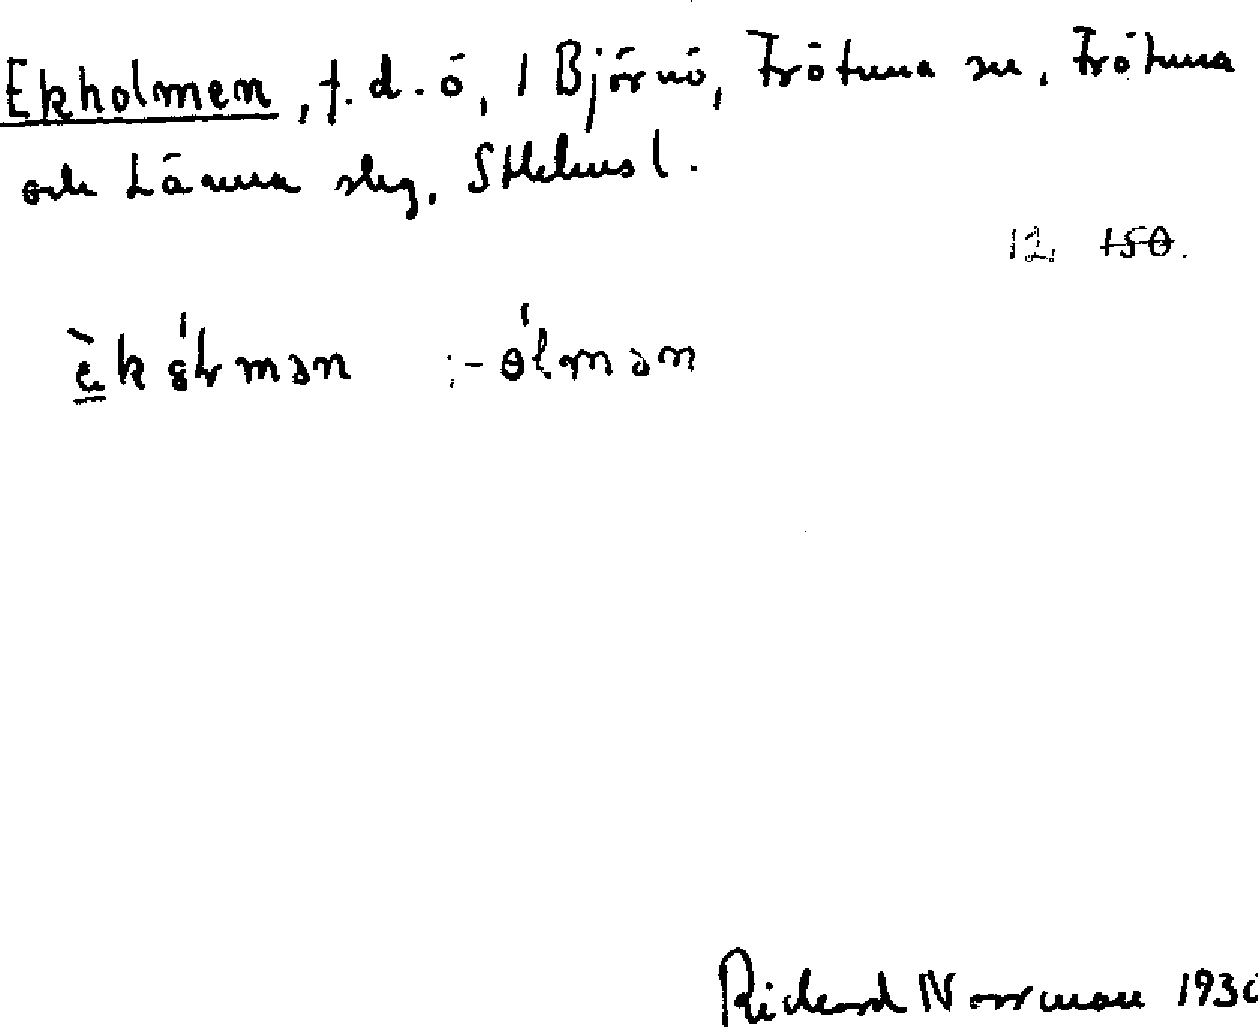 Ekholmen, f.d. ö, i Björnö, Frötuna sn, Frötuna
och Länna slg, Sthlms l.
12. 150.
èkɵ́lmən :-ɵ́lmən
Richard Norrman 1930